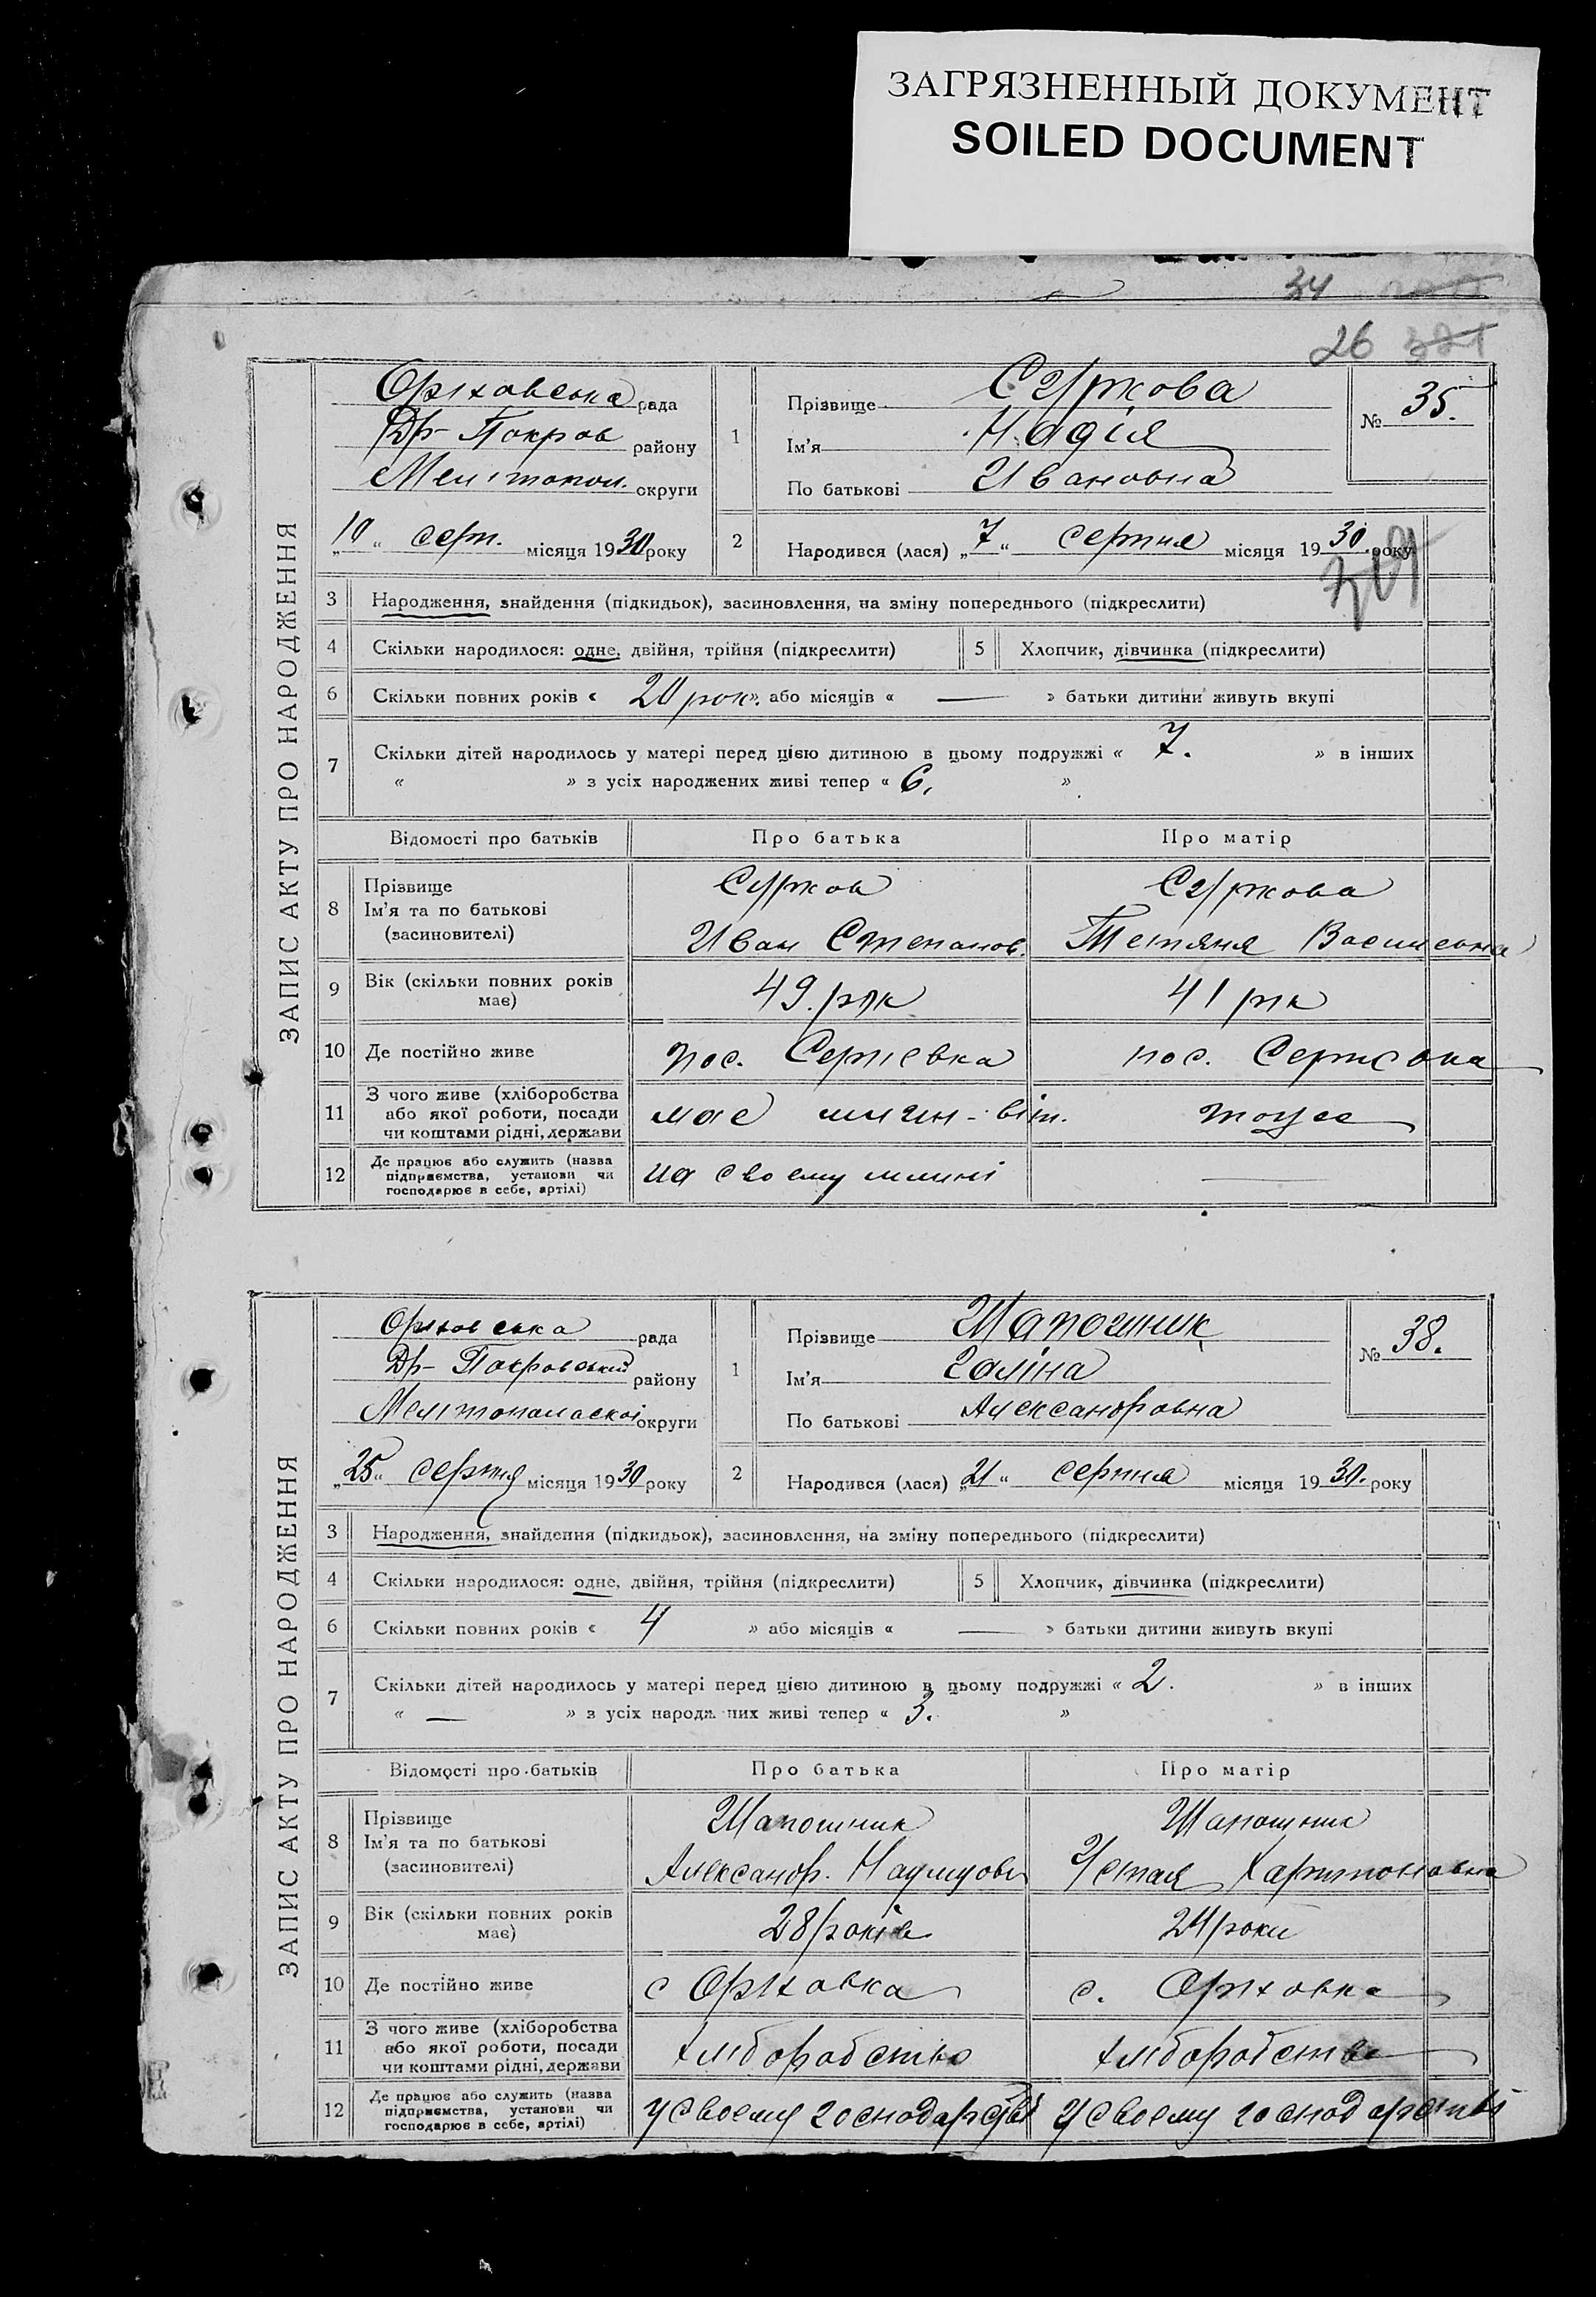 ЗАГРЯЗНЕННЫЙ ДОКУМЕНТ
SOILED DOCUMENT
34
26 321
ЗАПИС АКТУ ПРО НАРОДЖЕННЯ
Оріховська рада
Др-Покров району
Мелітопол. округи
„10“ серп. місяця 1930 року
1
Прізвище Суркова
Ім'я Надія
По батькові Ивановна
№ 35.
2
Народився (лася) „7“ серпня місяця 1930. року
3 Народження, знайдення (підкидьок), засиновлення, на зміну попереднього (підкреслити)
4 Скільки народилося: одне, двійня, трійня (підкреслити) 5 Хлопчик, дівчинка (підкреслити)
6 Скільки повних років « 20 рок». або місяців « — » батьки дитини живуть вкупі
7 Скільки дітей народилось у матері перед цією дитиною в цьому подружжі « 7. » в інших
« » з усіх народжених живі тепер « 6. »
Відомості про батьків Про батька Про матір
8 Прізвище
Ім'я та по батькові
(засиновителі)
Сурков
Иван Степанов.
Суркова
Тетяня Васильевна
9 Вік (скільки повних років має) 49. рок 41 рік
10 Де постійно живе пос. Сергіевка пос.
11 З чого живе (хліборобства
або якої роботи, посади
чи коштами рідні, держави
мае млин-віт. тоже
12 Де працює або служить (назва
підприємства, установи чи
господарює в себе, артілі)
на своему млині —
ЗАПИС АКТУ ПРО НАРОДЖЕННЯ
Оріховська рада
Др-Покровський району
Мелітопольскої округи
„25“ серпня місяця 1930 року
1
Прізвище Шапошник
Ім'я Галіна
По батькові Александровна
№ 38.
2
Народився (лася) „21“ серпня місяця 1930. року
3 Народження, знайдення (підкидьок), засиновлення, на зміну попереднього (підкреслити)
4 Скільки народилося: одне, двійня, трійня (підкреслити) 5 Хлопчик, дівчинка (підкреслити)
6 Скільки повних років « 4 » або місяців « — » батьки дитини живуть вкупі
7 Скільки дітей народилось у матері перед цією дитиною в цьому подружжі « 2. » в інших
« — » з усіх народжених живі тепер « 3. »
Відомості про батьків Про батька Про матір
8 Прізвище
Ім'я та по батькові
(засиновителі)
Шапошник
Александр. Наумов
Шапошник
Устая Харитоновна
9 Вік (скільки повних років має) 28 років 24 роки
10 Де постійно живе с Оріховка с. Оріховка
11 З чого живе (хліборобства
або якої роботи, посади
чи коштами рідні, держави
хліборобство хліборобство
12 Де працює або служить (назва
підприємства, установи чи
господарює в себе, артілі)
у своему господарстві у своему господарстві